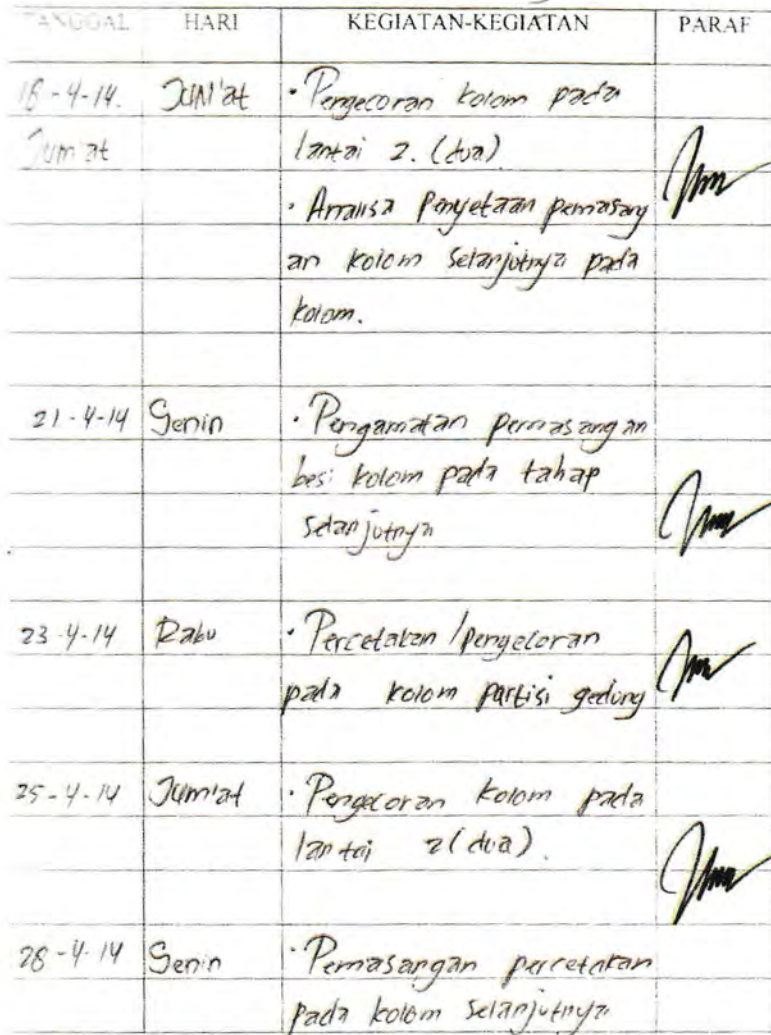 TANGGAL HARI KEGIATAN-KEGIATAN PARAF
18-4-14. Jum'at · Pengecoran kolom pada
Jum'at lantai 2. (dua)
· Analisa Penyetaan pemasang
an kolom selanjutnya pada
kolom.
21-4-14 Senin · Pengamatan pemasangan
besi kolom pada tahap
selanjutnya
23-4-14 Rabu · Percetakan/pengecoran
pada kolom partisi gedung
25-4-14 Jum'at · Pengecoran kolom pada
lantai 2 (dua).
28-4-14 Senin · Pemasangan percetakan
pada kolom selanjutnya